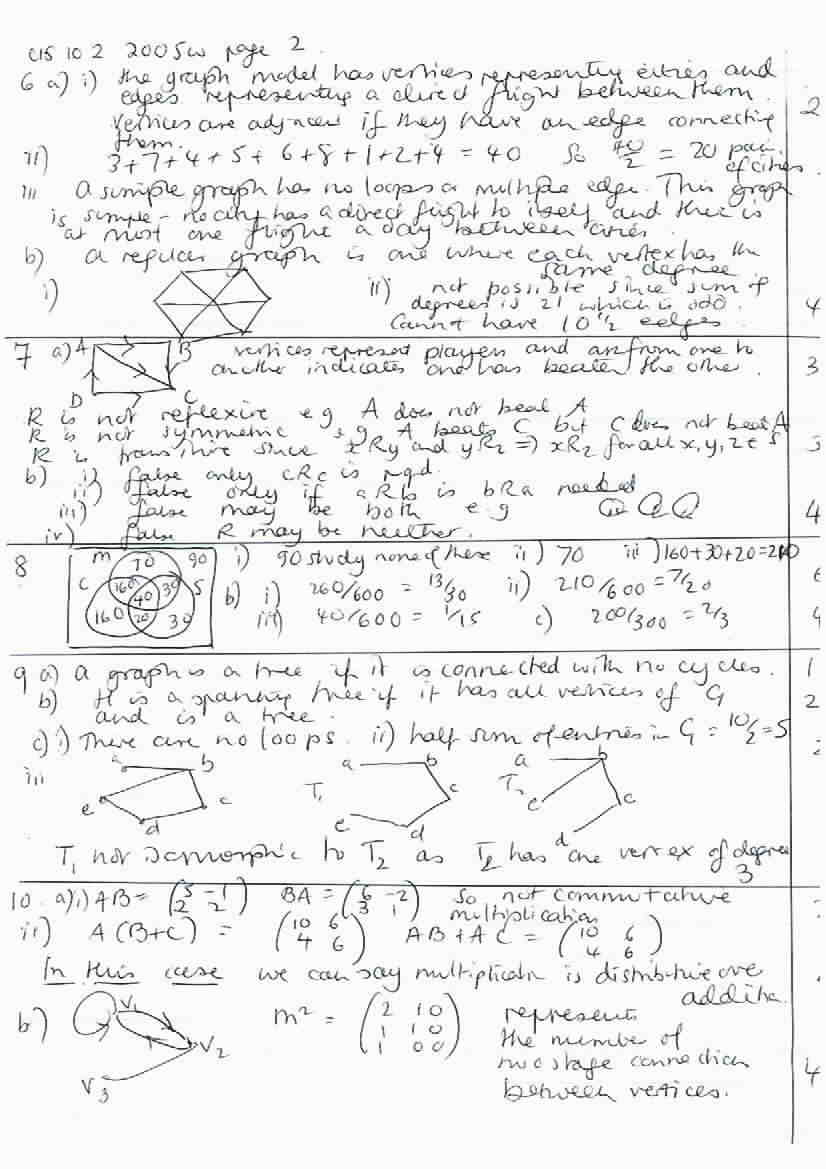 CIS 102 2005w page 2.
6 a) i) the graph model has vertices representing cities and
edges representing a direct flight between them.
Vertices are adjacent if they have an edge connecting 2
them.
ii) 3+7+4+5+6+8+1+2+4 = 40 So 40/2 = 20 pair
of cities.
iii A simple graph has no loops or multiple edge. This graph
is simple - no city has a direct flight to itself and there is
at most one flight a day between cities.
b) A regular graph is one where each vertex has the
same degree
i) ii) not possible since sum of
degrees is 21 which is odd. 4
Cannot have 10 1/2 edges.
7 a) A B vertices represent players and arc from one to
another indicates one has beaten the other. 3
D C
R is not reflexive eg A does not beat A
R is not symmetric eg A beats C but C does not beat A
R is transitive since xRy and yRz => xRz for all x, y, z ∈ S
b) i) false only cRc is rqd.
ii) false only if aRb is bRa needed
iii) false may be both eg 4
iv) false R may be neither.
8 M 70 90 i) 90 study none of these ii) 70 iii) 160+30+20=210
C 160 30 S b) i) 260/600 = 13/30 ii) 210/600 = 7/20
40
160 20 30 iii) 40/600 = 1/15 c) 200/300 = 2/3 4
9 a) A graph is a tree if it is connected with no cycles. 1
b) H is a spanning tree if it has all vertices of G 2
and is a tree.
c) i) There are no loops. ii) half sum of entries in G = 10/2 = 5
iii a b a b a b
e c T1 c T2 e c
d e d d
T1 not isomorphic to T2 as T2 has one vertex of degree
3
10. a) i) AB = (5 -1 BA = (6 -2 So not commutative
2 2) 3 1) multiplication
ii) A(B+C) = (10 6 AB+AC = (10 6
4 6) 4 6)
In this case we can say multiplication is distributive over
addition.
b) V1 M² = (2 1 0 represents
V2 1 1 0 the number of
1 0 0) two stage connection 4
V3 between vertices.